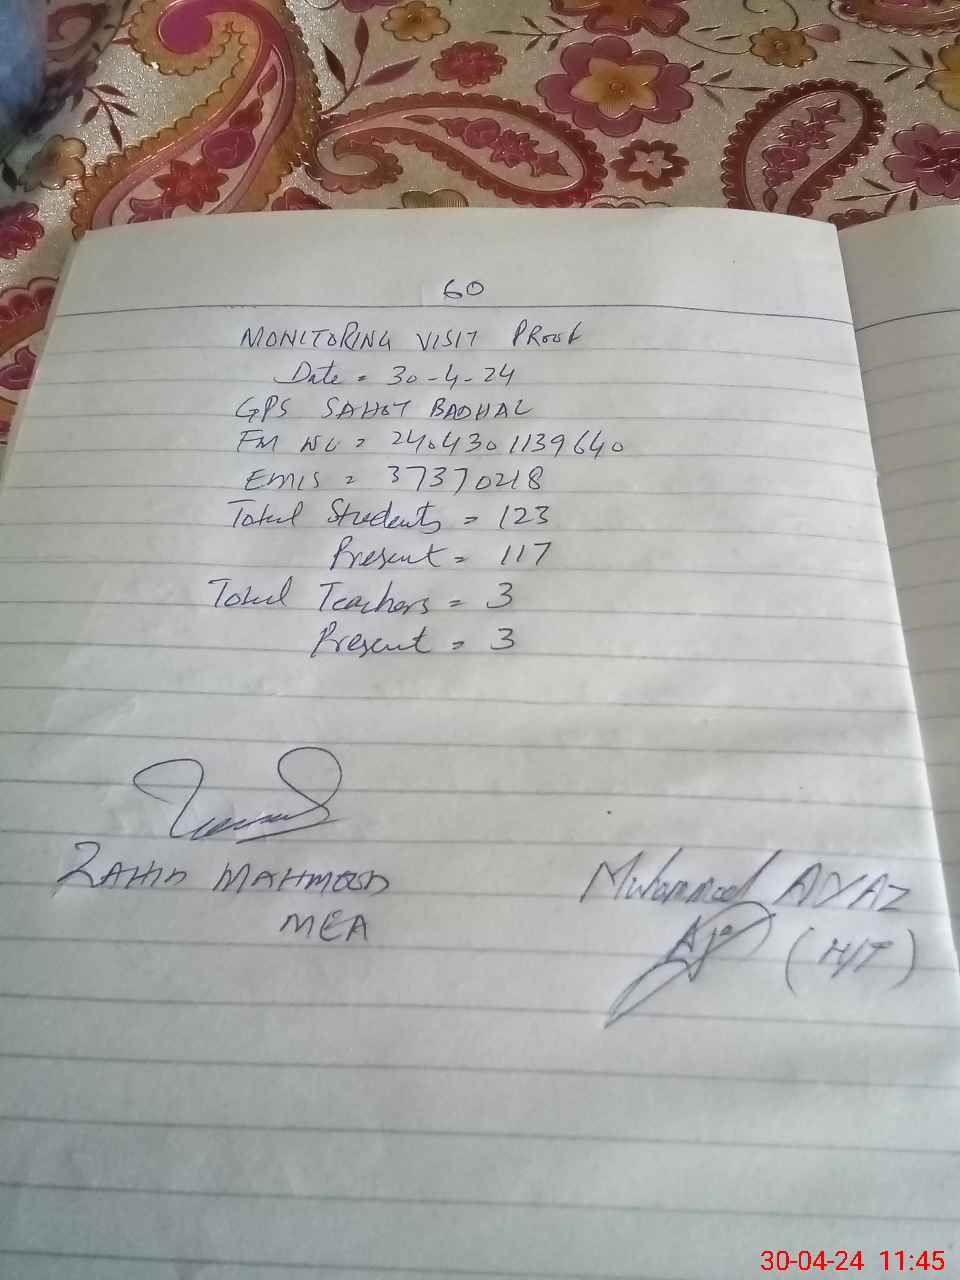 60
MONITORING VISIT PROOF
Date = 30-4-24
GPS SAHOT BADHAL
FM NO = 2404301139640
EMIS = 37370218
Total Students = 123
Present = 117
Total Teachers = 3
Present = 3
ZAHID MAHMOOD
MEA
Muhammad AYAZ
(H/T)
30-04-24 11:45